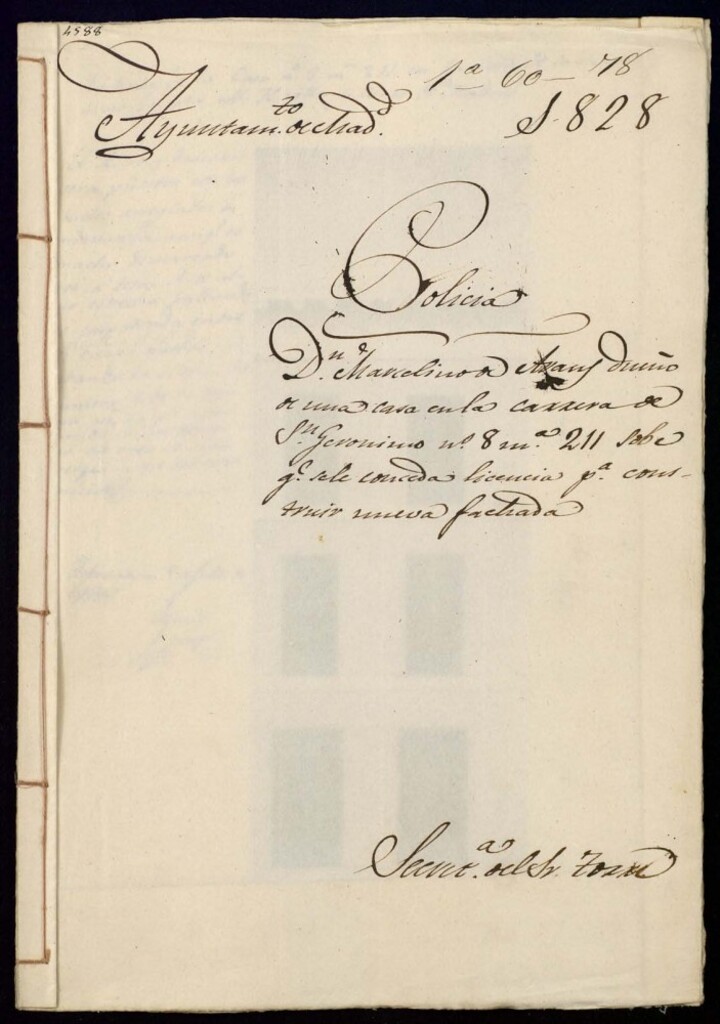 4588
1ª 60-78
Ayuntam.to de Mad.d 1.828
Policia
D.n Marcelino de Aranf dueño
de una casa en la carrera de
S.n Geronimo nº 8 m.ª 211 sobe
q.e sele conceda licencia p.ª cons-
truir nueva fachada
Secret.ª del Sr.